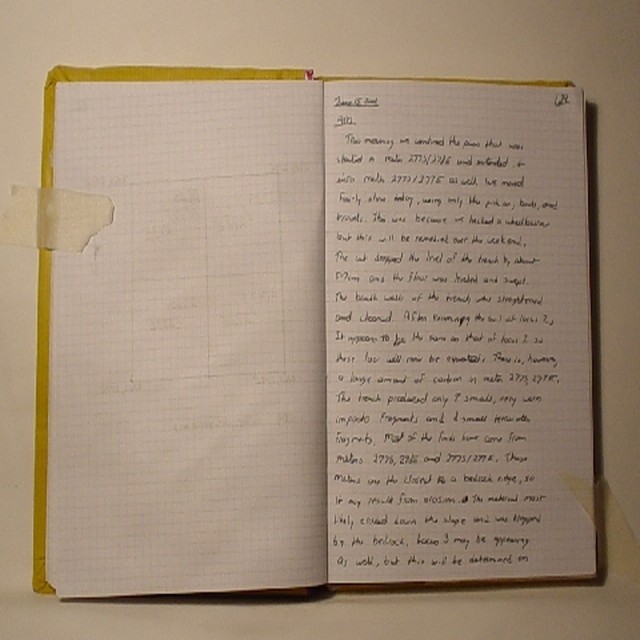 June 15 2001
This morning we continued the pass that was
started in meter 2773/2786 and extended it
into meter 2773/2775 as well. We moved
fairly slow today, using only the pick, hands, and
trowels. This was because we lacked a wheelbarrow
but this will be remedied over the weekend.
The cut dropped the level of the trench by about
and the floor was leveled and swept.
The walls of the trench was straightened
and cleaned. After the soil at locus 2,
It appears to be the same as that of locus 1 so
these loci will now be There is, however,
a large amount of carbon in meter
The trench produced only 9 small, very worn
fragments and 2 small
fragments. Most of the finds have come from
meters and 2773/2775. These
meters are the closest to a bedrock ridge, so
it may result from erosion. The material most
likely eroded down the slope and was trapped
by the bedrock, locus 3 may be appearing
as well, but this will be determined on